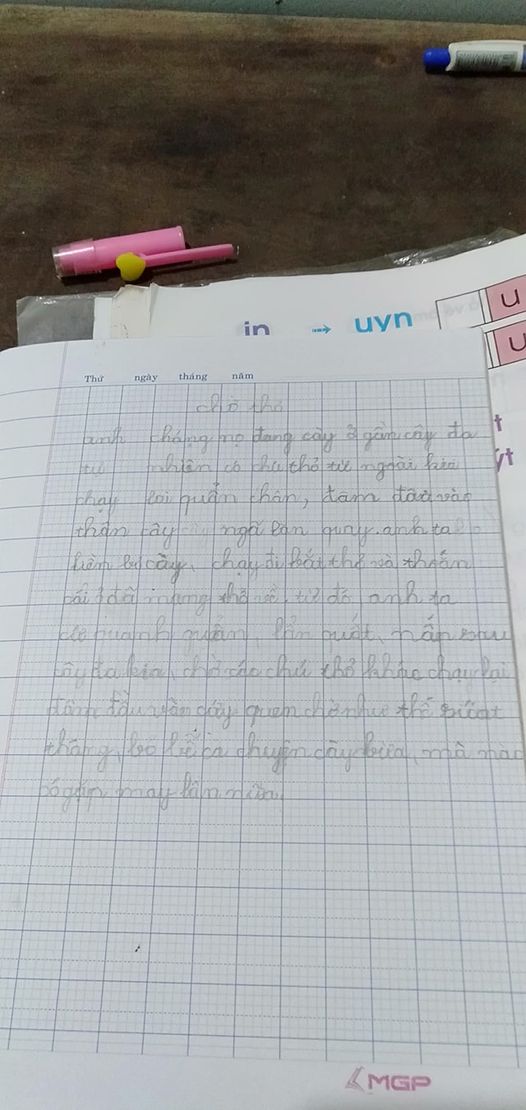 in → uyn
u
u
t
yt
Thứ ngày tháng năm
chờ thỏ
anh chàng nọ đang cày ở gần cây đa
tự nhiên có chú thỏ từ ngoài kia
chạy lại quẩn chân, đâm đầu vào
thân cây ngã lăn quay. anh ta
liền bỏ cày, chạy đi bắt thỏ và
mang thỏ về. từ đó, anh ta
cứ quanh quẩn, nấp sau
cây đa kia, chờ các chú thỏ khác chạy lại
đâm đầu vào cây quen chờ như thế suốt
tháng, bỏ bễ cả chuyện cày bừa, mà nào
có gặp may lần nữa.
MGP